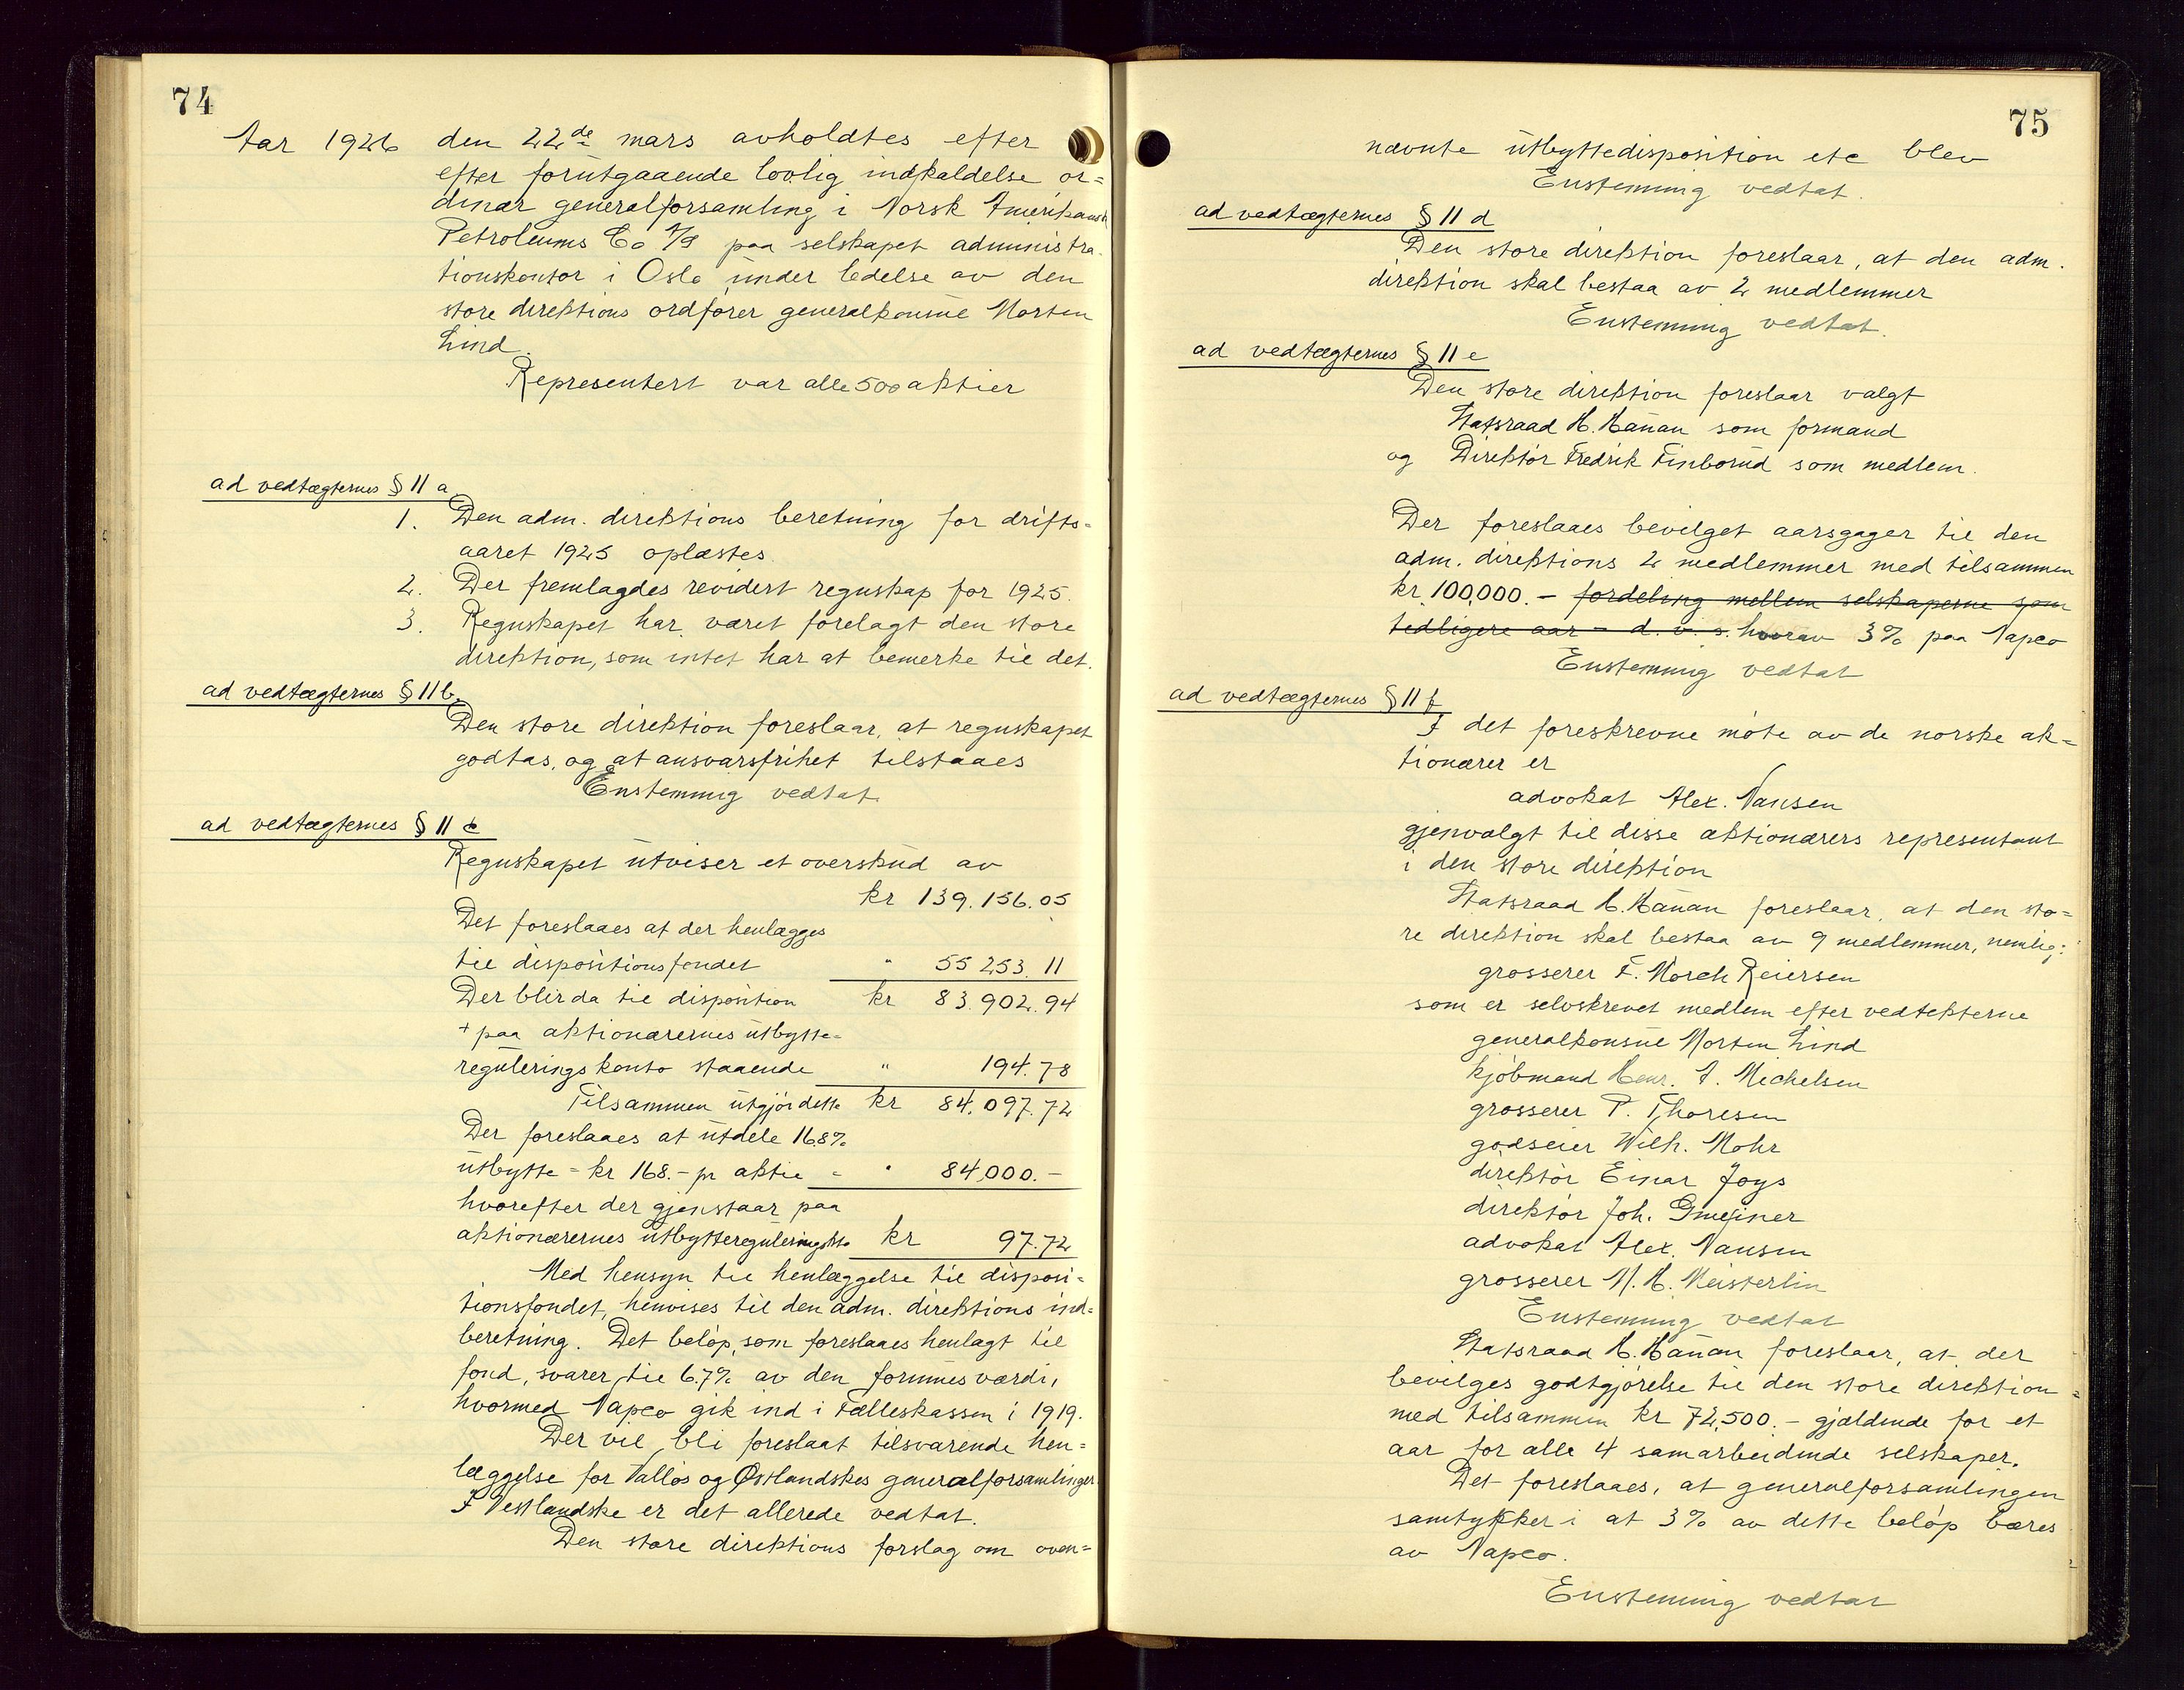 74
Aar 1926 den 22de mars avholdtes efter
efter forutgaaende lovlig indkaldelse or=
dinær generalforsamling i Norsk Amerikansk
Petroleums Co A/S paa selskapet administra-
tionskontor i Oslo under ledelse av den
store direktions ordfører generalkonsul Morten
Lind.
Representert var alle 500 aktier
ad vedtægternes § 11 a
1. Den adm. direktions beretning for drifts=
aaret 1925 oplæstes.
2. Der fremlagdes revidert regnskap for 1925.
3. Regnskapet har været forelagt den store
direktion, som intet har at bemerke til det.
ad vedtægternes § 11 b.
Den store direktion foreslaar, at regnskapet
godtas, og at ansvarsfrihet tilstaaes
Enstemmig vedtat.
ad vedtægternes § 11 c
Regnskapet utviser et overskud av
kr 139.156.05
Det foreslaaes at der henlægges
til dispositionsfondet " 55 253.11
Der blir da til disposition kr 83.902.94
+ paa aktionærernes utbytte=
regulerings konto staaende " 194.78
Tilsammen utgjør dette kr 84.097.72
Der foreslaaes at utdele 16.8%
utbytte = kr 168.- pr aktie = " 84,000.-
hvorefter der gjenstaar paa
aktionærernes utbyttereguleringskto kr 97.72
Med hensyn til henlæggelse til disposi=
tionsfondet, henvises til den adm. direktions ind=
beretning. Det beløp, som foreslaaes henlagt til
fond, svarer til 6.7% av den formues værdi,
hvormed Napco gik ind i Fælleskassen i 1919.
Der vil bli foreslaat tilsvarende hen=
læggelse for Valløs og Østlandskes generalforsamlinger.
I Vestlandske er det allerede vedtat.
Den store direktions forslag om oven=
75
nævnte utbyttedisposition etc blev
Enstemmig vedtat.
ad vedtægternes § 11 d
Den store direktion foreslaar, at den adm.
direktion skal bestaa av 2 medlemmer
Enstemmig vedtat.
ad vedtægternes § 11 e
Den store direktion foreslaar valgt
Statsraad K. Hanan som formand
og Direktør Fredrik Finborud som medlem.
Der foreslaaes bevilget aarsgager til den
adm. direktions 2 medlemmer med tilsammen
kr. 100,000.- fordeling mellem selskaperne som
tidligere aar - d. v. s. hvorav 3% paa Napco
Enstemmig vedtat
ad vedtægternes § 11 f
I det foreskrevne møte av de norske ak=
tionærer er
advokat Alex. Nansen
gjenvalgt til disse aktionærers representant
i den store direktion
Statsraad K. Hanan foreslaar, at den sto=
re direktion skal bestaa av 9 medlemmer, nemlig:
grosserer F. Morch Reiersen
som er selvskrevet medlem efter vedtekterne
generalkonsul Morten Lind
kjøbmand Henr. J. Michelsen
grosserer P. Thoresen
godseier Wilh. Mohr
direktør Einar Joys
direktør Joh. Gmeiner
advokat Alex. Nansen
grosserer M. H. Meisterlin
Enstemmig vedtat
Statsraad K. Hanan foreslaar, at der
bevilges godtgjørelse til den store direktion=
med tilsammen kr 72,500.- gjældende for et
aar for alle 4 samarbeidende selskaper.
Det foreslaaes, at generalforsamlingen
samtykker i at 3% av dette beløp bæres
av Napco.
Enstemmig vedtat